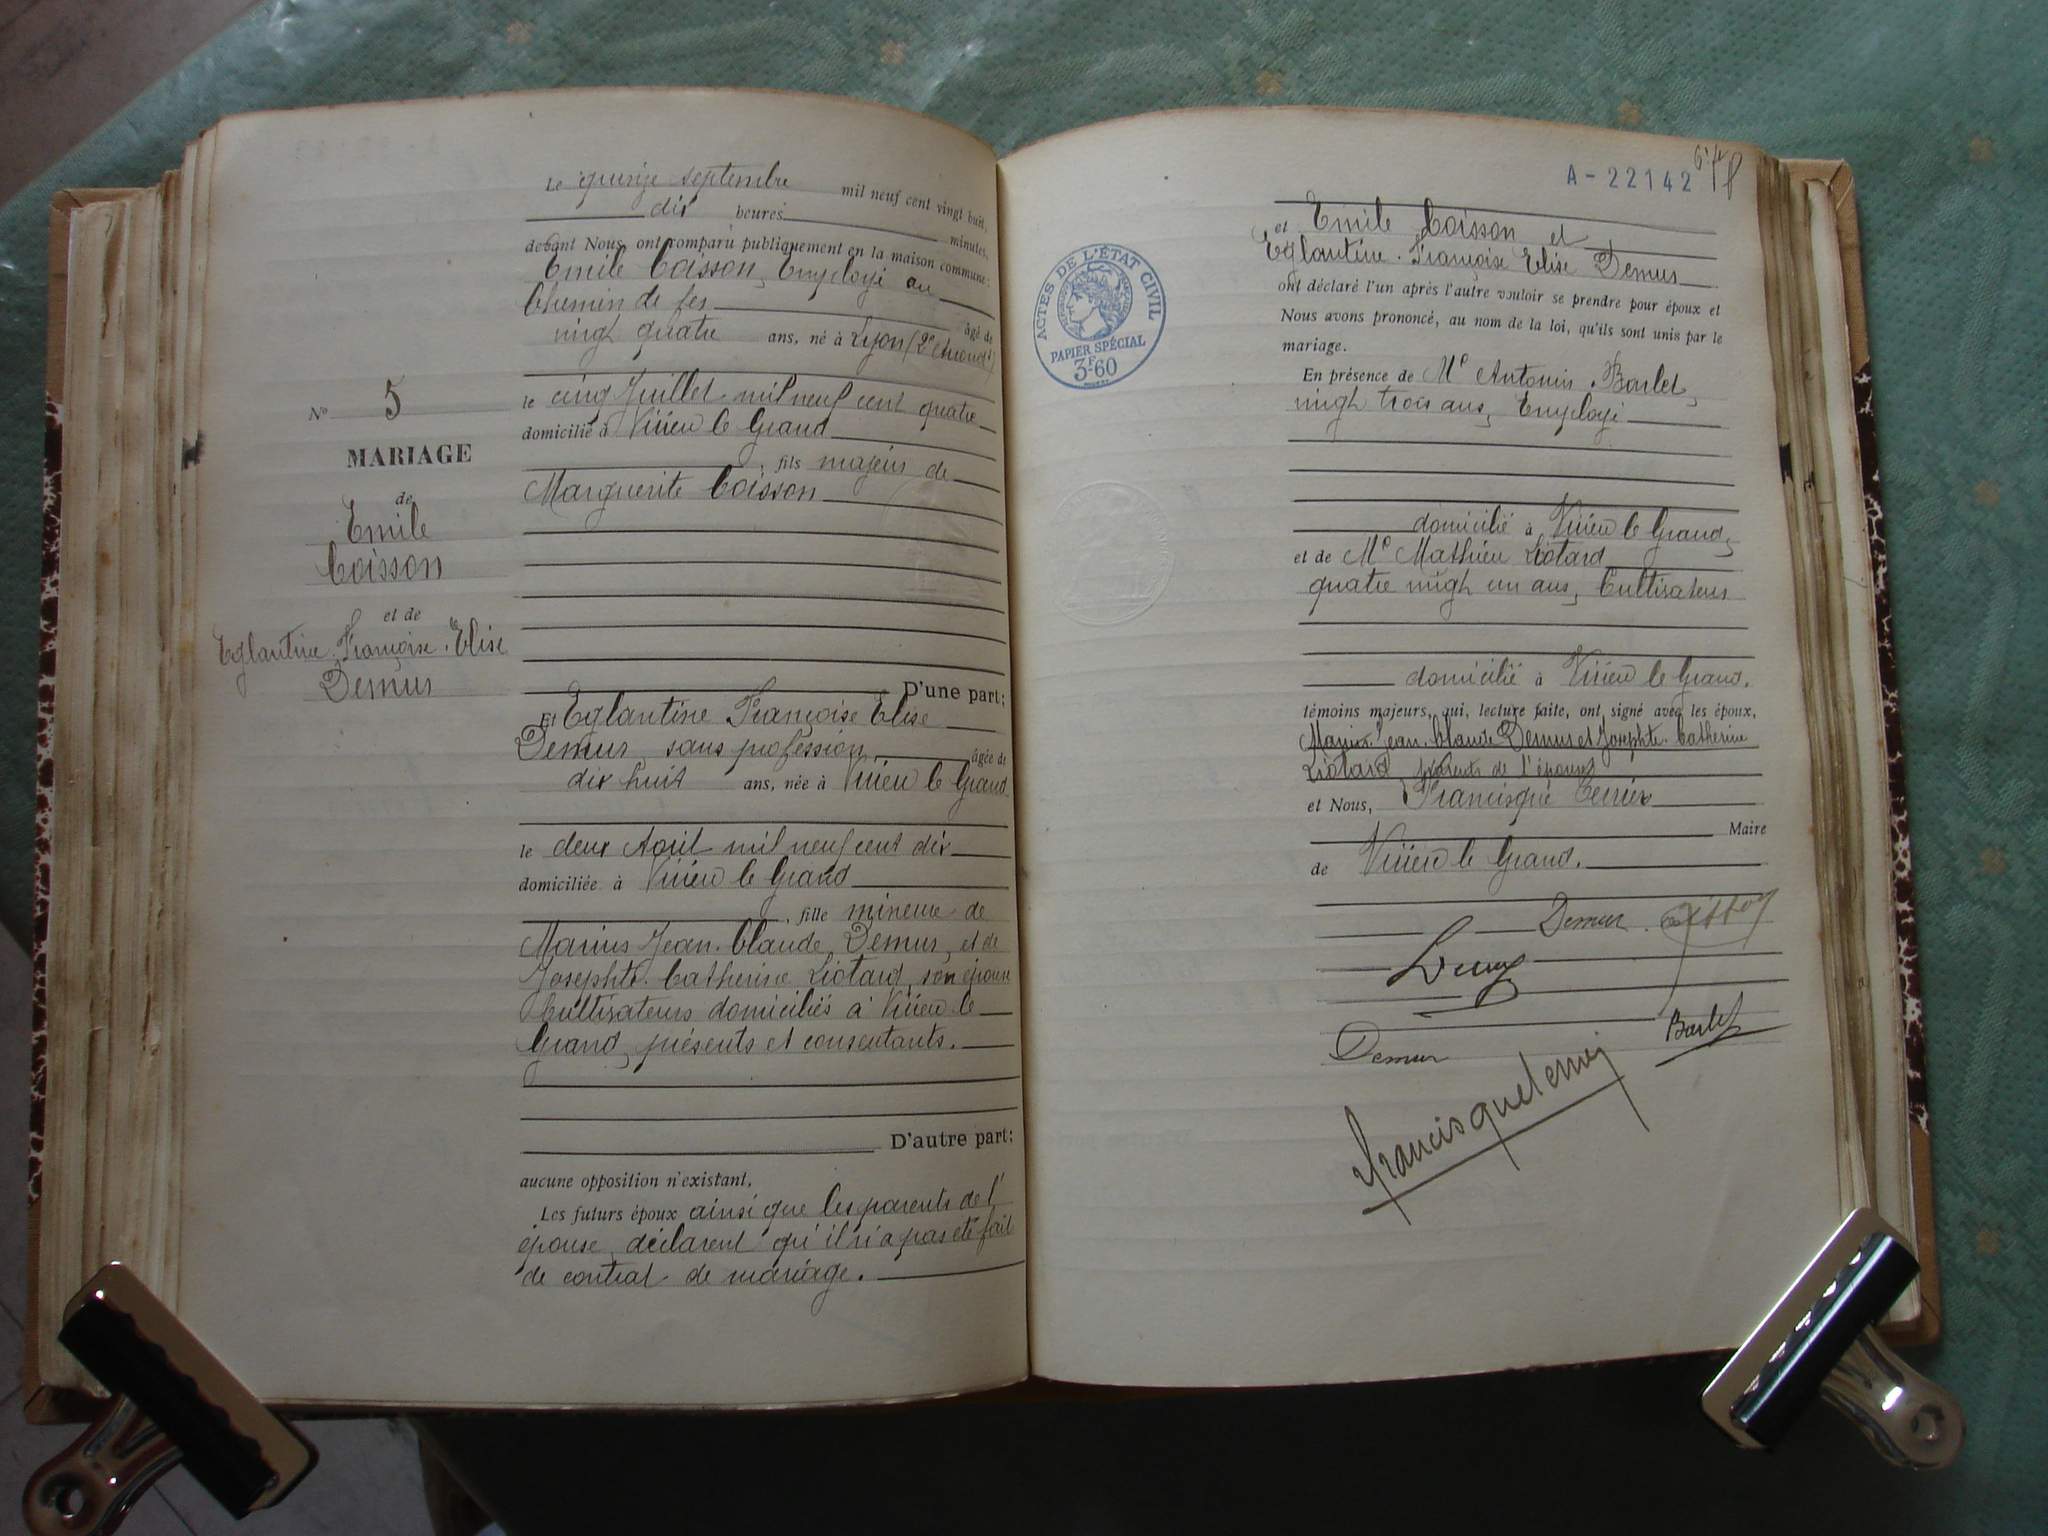 Le quinze septembre mil neuf cent vingt huit,
dix heures minutes,
devant Nous, ont comparu publiquement en la maison commune:
Emile Coisson, Employé au
Chemin de fer
âgé de
vingt quatre ans, né à Lyon (2e
le cinq Juillet mil neuf cent quatre
domicilié à Virieu le Grand
, fils majeur de
Marguerite Coisson
No 5
MARIAGE
de
Emile
Coisson
et de
Eglantine Françoise Elise
Demur
D'une part;
Et Eglantine Françoise Elise
Demur, sans profession, âgée de
dix huit ans, née à Virieu le Grand
le deux Août mil neuf cent dix
domiciliée à Virieu le Grand
, fille mineure de
Marius Jean Claude Demur, et de
Josephte Catherine Liotard, son épouse
Cultivateurs domiciliés à Virieu le
Grand, présents et consentants.
D'autre part:
aucune opposition n'existant,
Les futurs époux ainsi que les parents de l'
épouse, déclarent qu'il n'a pas été fait
de contrat de mariage.
A-22142
ACTES DE L'ÉTAT CIVIL
PAPIER SPÉCIAL
3F60
et Emile Coisson et
Eglantine Françoise Elise Demur
ont déclaré l'un après l'autre vouloir se prendre pour époux et
Nous avons prononcé, au nom de la loi, qu'ils sont unis par le
mariage.
En présence de Mr Antonin Barlet,
vingt trois ans, Employé
domicilié à Virieu le Grand,
et de Mr Mathieu Liotard
quatre vingt un ans, Cultivateur
domicilié à Virieu le Grand.
témoins majeurs, qui, lecture faite, ont signé avec les époux,
Marius Jean Claude Demur et Josephte Catherine
Liotard, parents de l'épouse
et Nous, Francisque Terrier
Maire
de Virieu le Grand.
Demur
Demur
Barlet